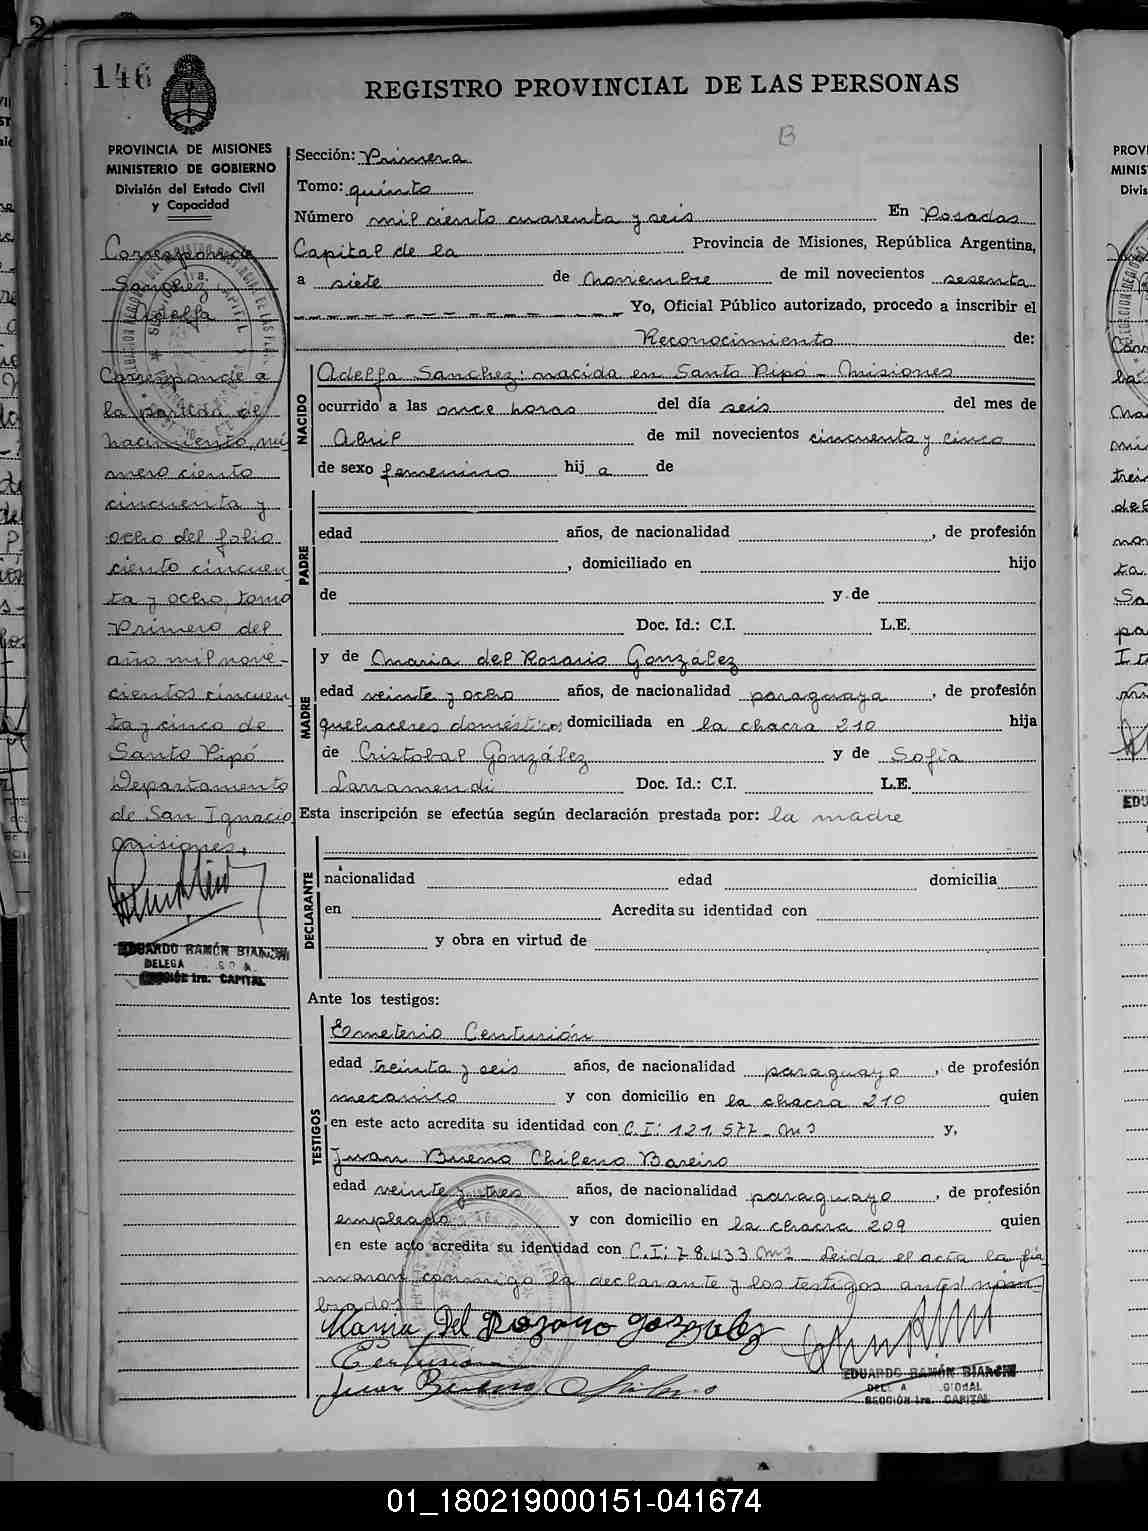 146
REGISTRO PROVINCIAL DE LAS PERSONAS
B
PROVINCIA DE MISIONES
MINISTERIO DE GOBIERNO
División del Estado Civil
y Capacidad
Corresponde
Sanchez
Adelfa
Corresponde a
la partida de
nacimiento, nú
mero ciento
cincuenta y
ocho del folio
ciento cincuen
ta y ocho, tomo
Primero del
año mil nove-
cientos cincuen
ta y cinco de
Santo Pipó
Departamento
de San Ignacio
Misiones.
EDUARDO RAMÓN BIANCHI
DELEGA
SECCIÓN 1ra. CAPITAL
Sección: Primera
Tomo: quinto
Número mil ciento cuarenta y seis En Posadas
Capital de la Provincia de Misiones, República Argentina,
a siete de Noviembre de mil novecientos sesenta
Yo, Oficial Público autorizado, procedo a inscribir el
Reconocimiento de:
NACIDO
Adelfa Sanchez: nacida en Santo Pipó - Misiones
ocurrido a las once horas del día seis del mes de
Abril de mil novecientos cincuenta y cinco
de sexo femenino hij a de
PADRE
edad años, de nacionalidad , de profesión
, domiciliado en hijo
de y de
Doc. Id.: C.I. L.E.
MADRE
y de Maria del Rosario González
edad veinte y ocho años, de nacionalidad paraguaya, de profesión
quehaceres domésticos domiciliada en la chacra 210 hija
de Cristobal González y de Sofia
Larramendi Doc. Id.: C.I. L.E.
Esta inscripción se efectúa según declaración prestada por: la madre
DECLARANTE
nacionalidad edad domicilia
en Acredita su identidad con
y obra en virtud de
Ante los testigos:
TESTIGOS
Emeterio Centurión
edad treinta y seis años, de nacionalidad paraguayo, de profesión
mecanico y con domicilio en la chacra 210 quien
en este acto acredita su identidad con C.I: 121.577 - Mns y,
Juan Bueno Chileno Bareiro
edad veinte y tres años, de nacionalidad paraguayo, de profesión
empleado y con domicilio en la chacra 209 quien
en este acto acredita su identidad con C.I: 78.433 Mns - Leida el acta la fir
maron conmigo la declarante y los testigos antes nom
brados
Maria Del Rozario gonzalez
Centurion
Juan Bueno Chileno
EDUARDO RAMÓN BIANCHI
SECCIÓN 1ra. CAPITAL
01_180219000151-041674